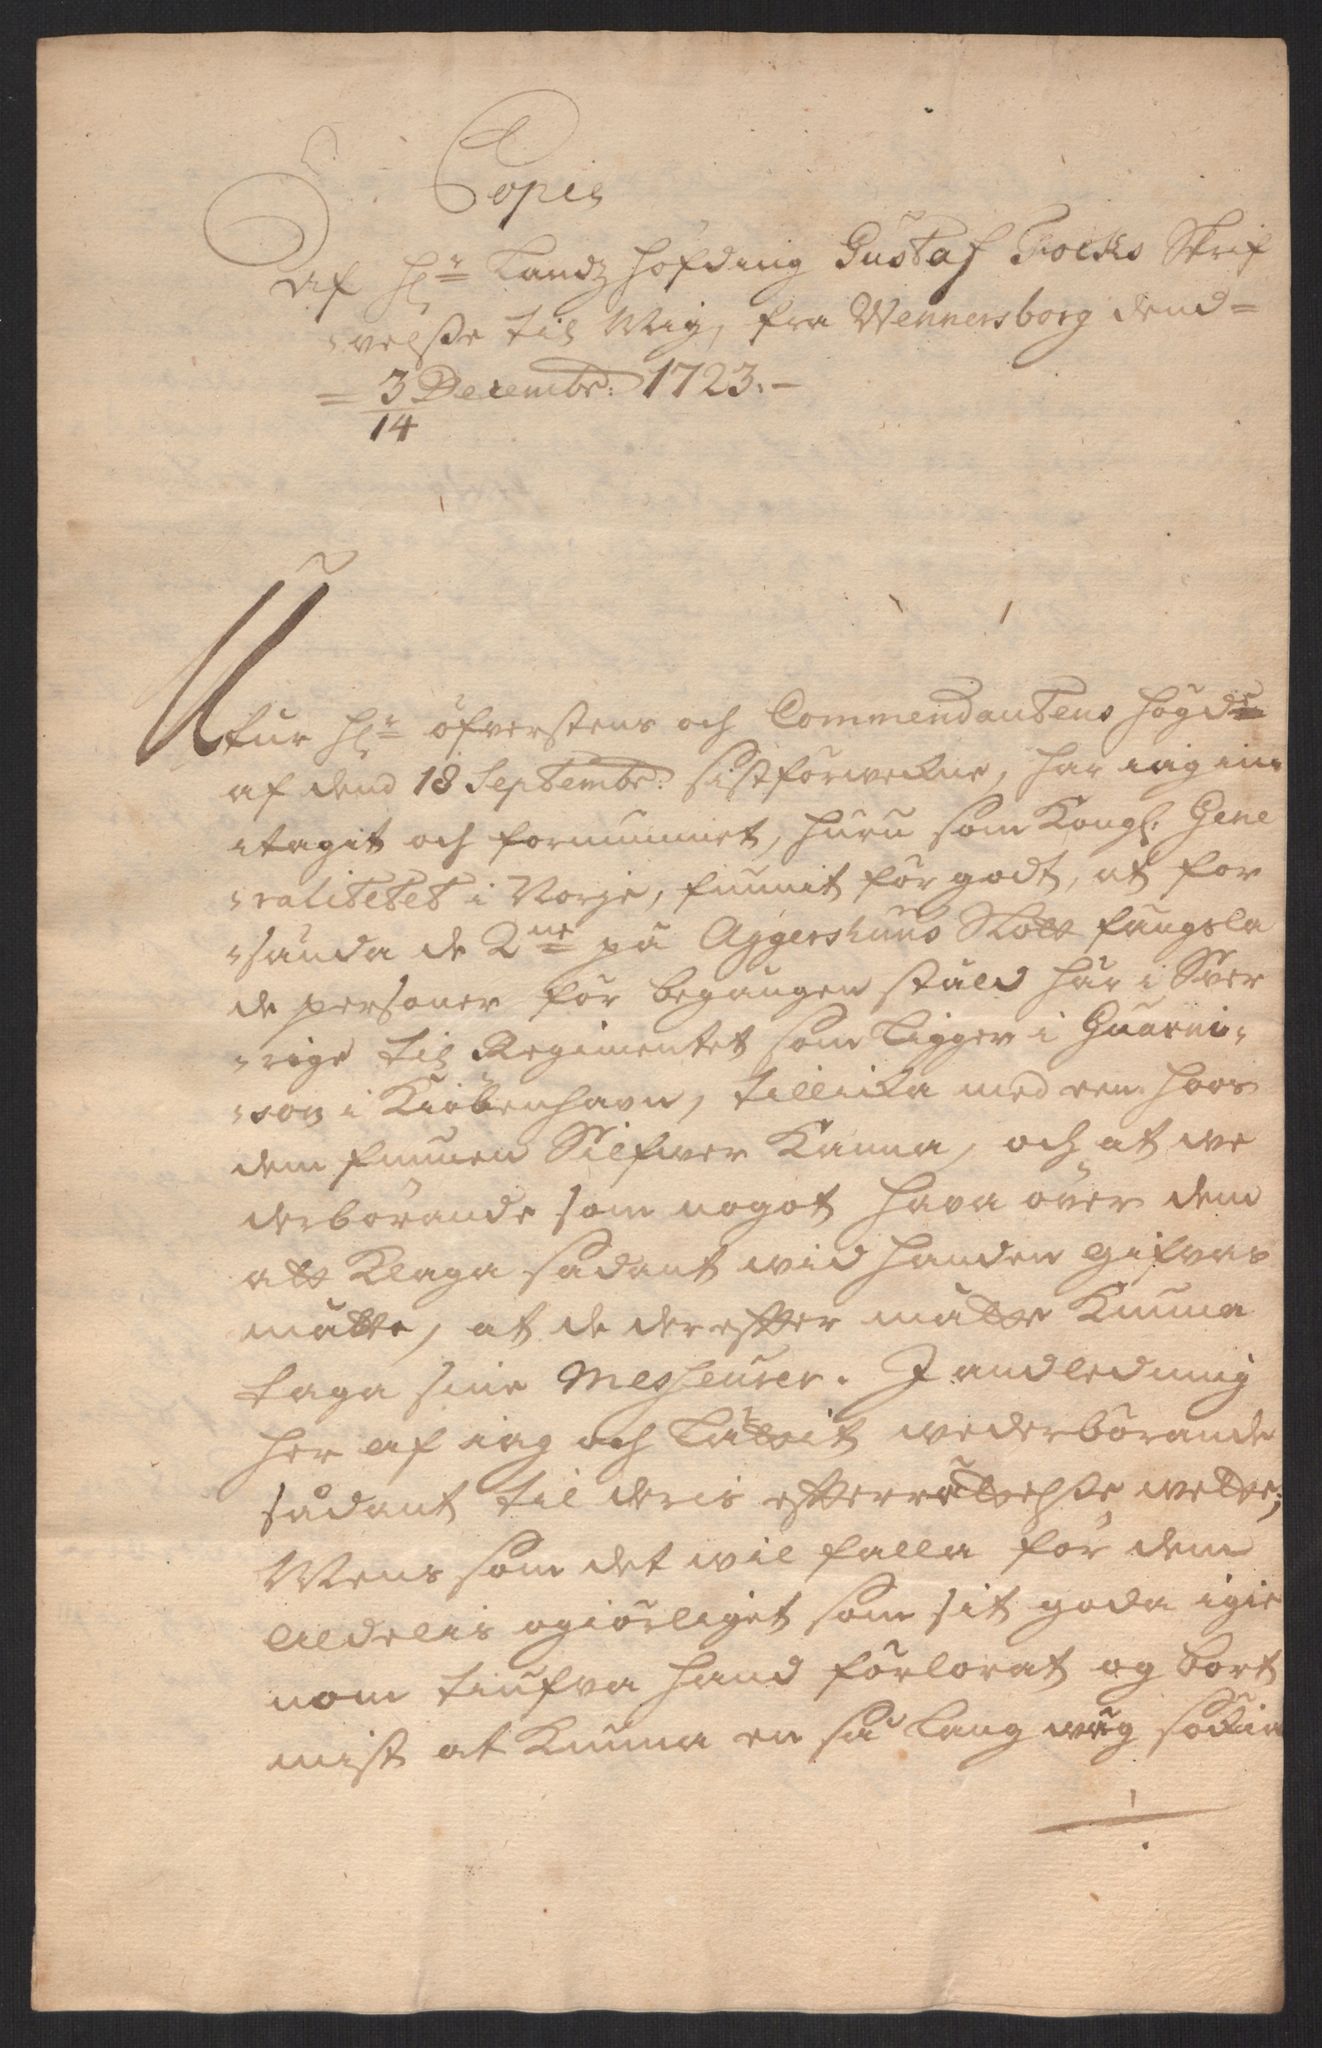 Copie
Af Hr Landz höfding Gustaf Focks Skrif
velsse til Mig, fra Wennersborg dend
3 Decembr: 1723.
14
Utur Hr öfverstens och Commendantens högd
af dend 18 Septembr. sistförwekne, har iag in
tagit och fornummet, huru som Kongl: Gene
ralitetet i Norje, funnit för godt, at for
sända de 2ne på Aggershuus Slott fängsla
de personer för begången stüld här i Sver
rige til Regimentet som ligger i Guarni
son i Kiöbenhavn, tillika med een hoos
dem funnen Silfwer Kanna, och at we
derbörande som nogot hava över dem
att Klaga sådant wid handen gifvas
måtte, at de der efter måtte Kunna
taga sine Meszeurer. J andledning
her af iag och Låtit wederbörande
sådant til deris efterrättelsse wette;
Mens som det wil falla för dem
aldelis ogiörliget som sit goda igie
nom tiufva hand förlorat og bort
mist at Kunna en så lang wäg sökia